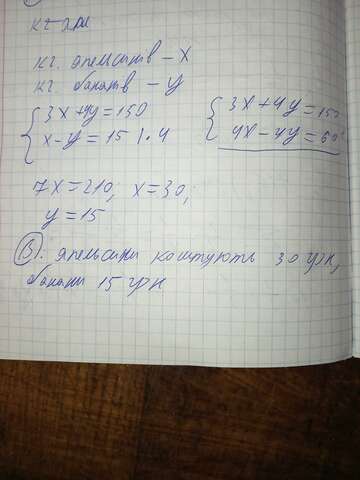 кг-
кг. апельсинів - x
кг. бананів - y
3x+4y=150
x-y=15 |·4
3x+4y=150
4x-4y=60
7x=210; x=30;
y=15
В. Апельсини коштують 30 грн,
банани 15 грн